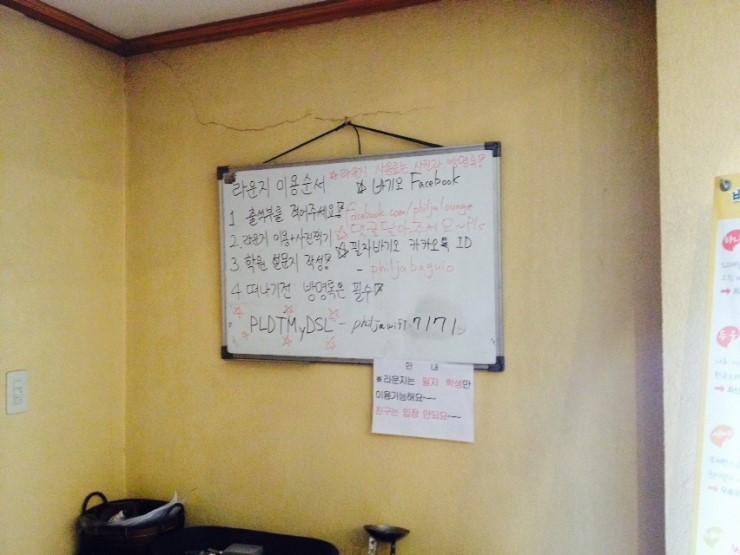 라운지 이용순서
☆ 라운지 사용료는 사진과 방명록!!
☆ 바기오 Facebook
1 출석부를 적어주세요!!
facebook.com/philjalounge
2. 라운지 이용+사진찍기
☆ 댓글달아주세요~pls
3 학원 설문지 작성!!
☆ 필자바기오 카카오톡 ID
- philjabaguio
4 떠나기전 방명록은 필수!!
PLDTMyDSL - philjawifi
안 내
※라운지는 필자 학생만
이용가능해요~~
친구는 입장 안되요~~